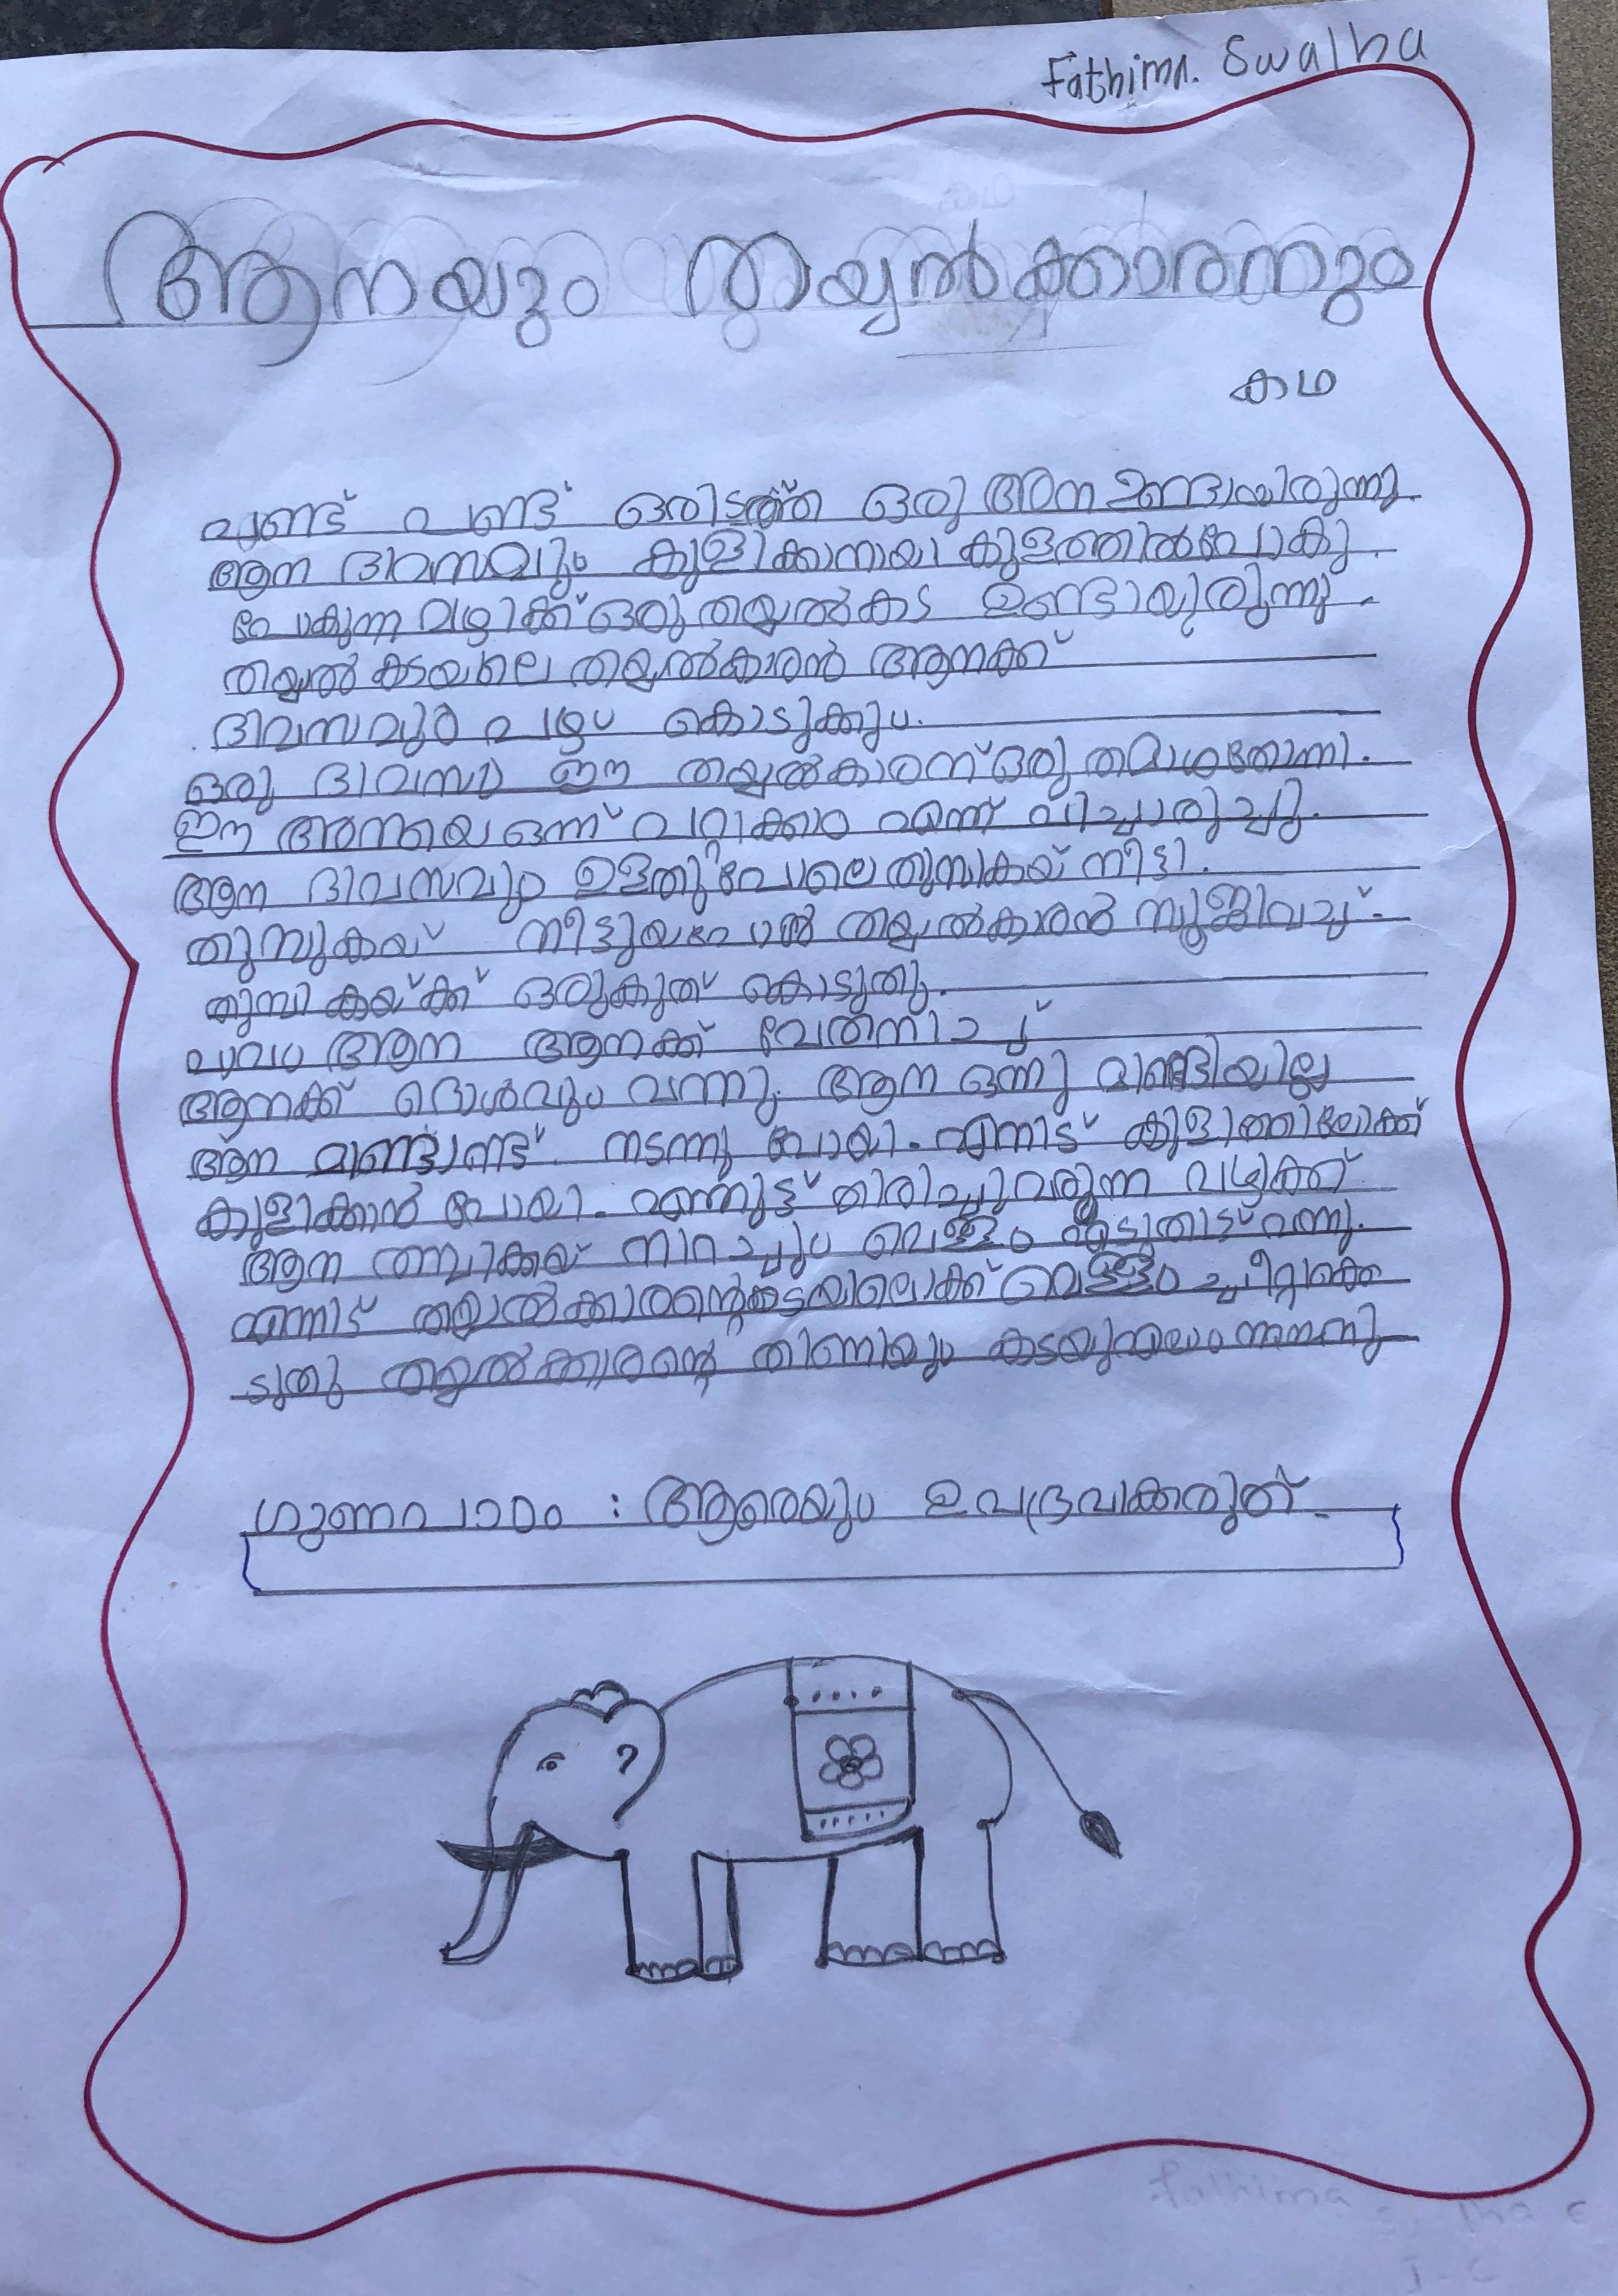 Fathima. Swalha
ആനയും തുയ്യൽക്കാരനും
കഥ
പണ്ട് പണ്ട് ഒരിടത്ത ഒരു അന ഉണ്ടായിരുന്നു.
ആന ദിവസവും കുളിക്കാനായി കുളത്തിൽ പോകു.
പോകുന്ന വഴിക്ക് ഒരു തയ്യൽകട ഉണ്ടായിരുന്നു.
തയ്യൽ കടയിലെ തയ്യൽകാരൻ ആനക്ക്
ദിവസവും പഴം കൊടുക്കും.
ഒരു ദിവസം ഈ തയ്യൽകാരന് ഒരു തമാശതോന്നി.
ഈ അനയെ ഒന്ന് പറ്റിക്കാം എന്ന് വിച്ചാരിച്ചു.
ആന ദിവസവും ഉള്ളതുപോലെ തുമ്പികയ് നീട്ടി.
തുമ്പുകയ് നീട്ടുയപോൾ തയ്യൽകാരൻ സൂജിവച്ച്.
തുമ്പി കയ്ക്ക് ഒരുകുത് കൊടുതു.
പാവം ആന ആനക്ക് വേതനിച്ചു
ആനക്ക് ദെശവും വന്നു. ആന ഒന്നു മിണ്ടിയില്ല
ആന മിണ്ടാണ്ട്. നടന്നു പോയി. എന്നിട് കുളിത്തിലേക്ക്
കുളിക്കാൻ പോയി. എന്നിട്ട് തിരിച്ചുവരുന്ന വഴിക്ക്
ആന തമ്പിക്കയ് നിറച്ചും വെള്ളം എടുതിട്ട് വന്നു.
എന്നിട് തയ്യൽക്കാരന്റെ കടയിലൊക്ക് വെള്ളം ച്ചീറ്റിക്കൊ
ടുതു തയ്യൽക്കാരന്റെ തിണിയും കടയുംഎലാം നനനു
ഗുണപാഠം : ആരെയും ഉപദ്രവിക്കരുത്.
fathima